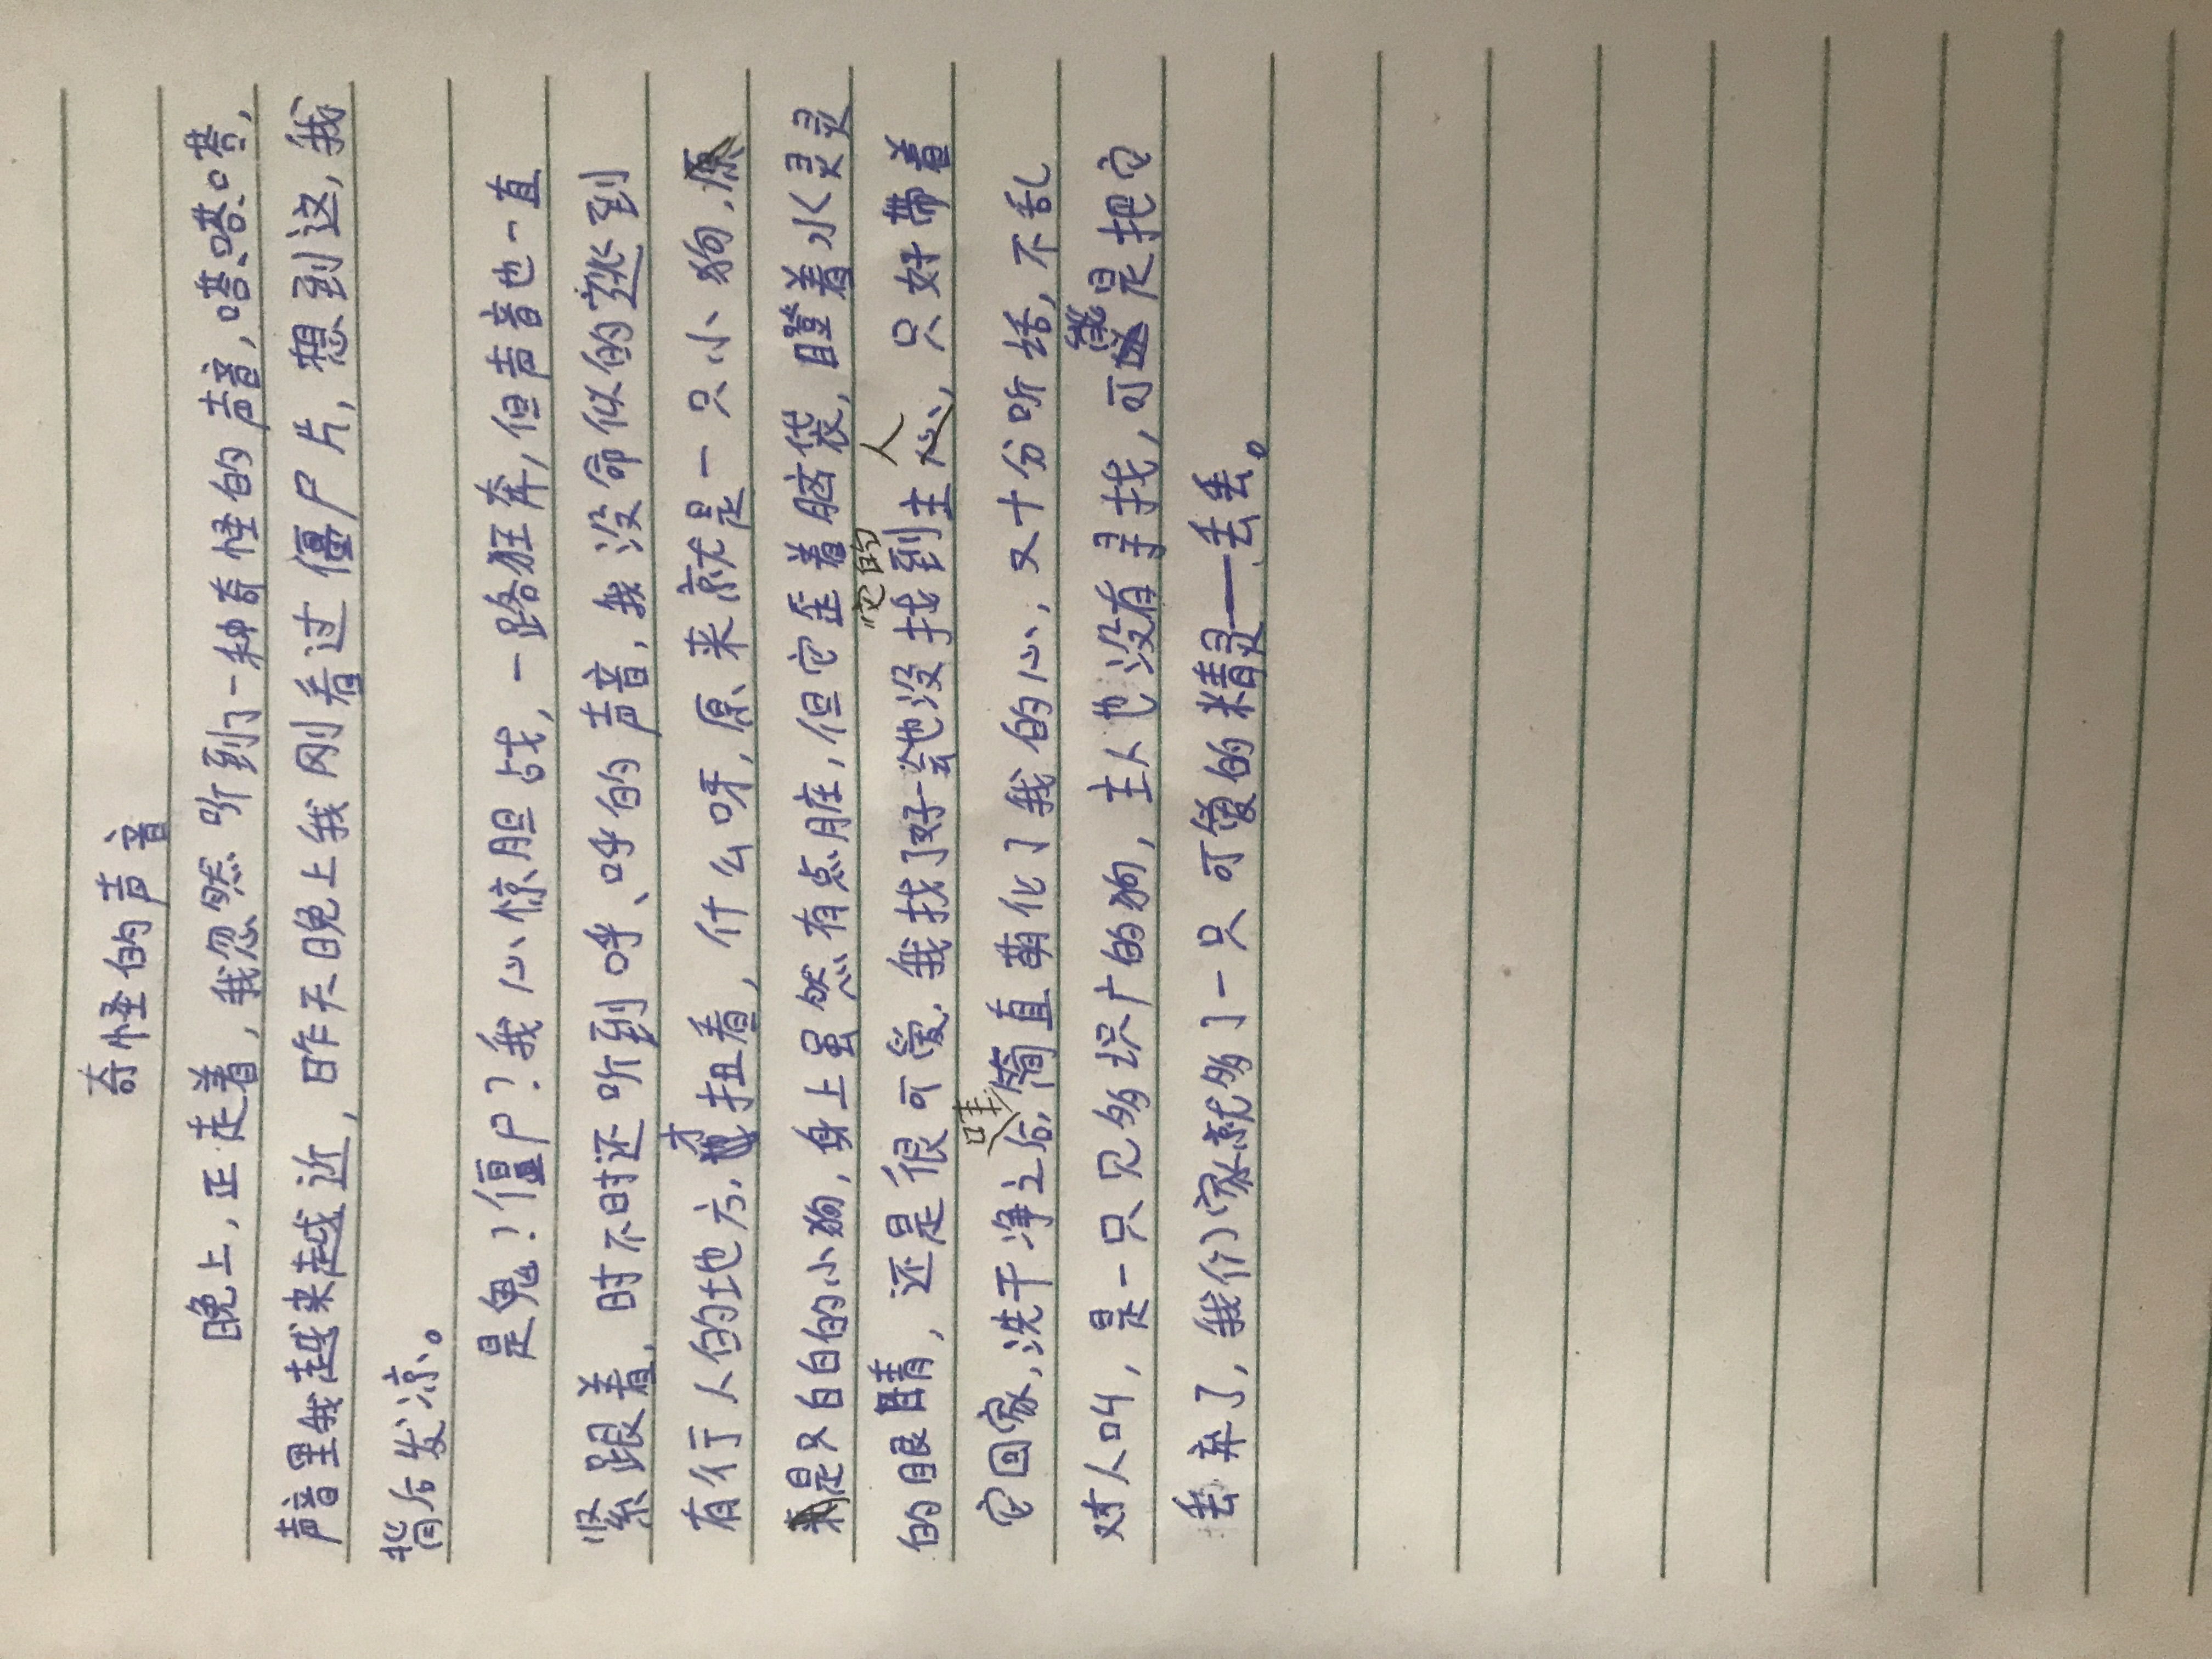 奇怪的声音
晚上,正走着,我忽然听到一种奇怪的声音,嗒嗒嗒,
声音里我越来越近,昨天晚上我刚看过僵尸片,想到这,我
背后发凉。
是鬼!僵尸?我心惊胆战,一路狂奔,但声音也一直
紧跟着,时不时还听到呼、呼的声音,我没命似的逃到
有行人的地方,才扭看,什么呀,原来就是一只小狗,
是只白白的小狗,身上虽然有点脏,但它歪着脑袋,瞪着水灵灵
的眼睛,还是很可爱,我找了好一会也没找到它的主人,只好带着
它回家,洗干净之后,哇简直萌化了我的心,又十分听话,不乱
对人叫,是一只见多识广的狗,主人也没有寻找,可能是把它
丢弃了,我们家就多了一只可爱的精灵——丢丢。